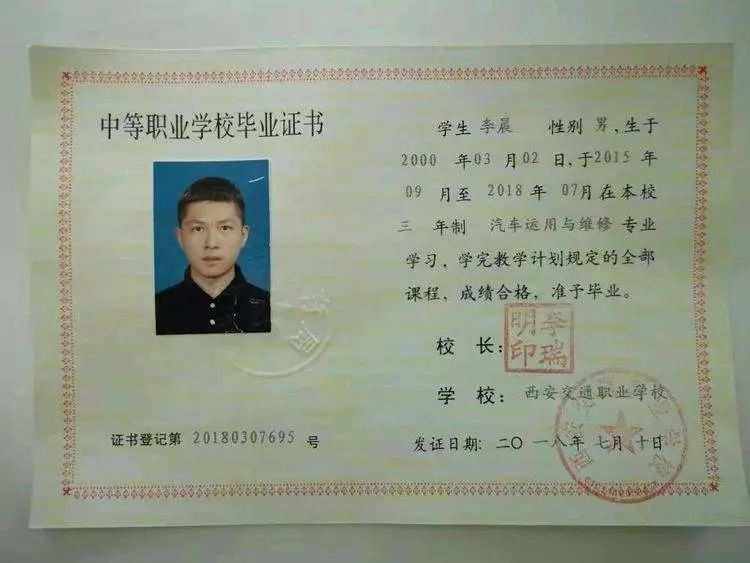 中等职业学校毕业证书
证书登记第 20180307695 号
学生 李晨 性别 男，生于
2000 年 03 月 02 日，于 2015 年
09 月至 2018 年 07 月在本校
三 年制 汽车运用与维修 专业
学习，学完教学计划规定的全部
课程，成绩合格，准予毕业。
校 长：
李瑞
明印
学 校： 西安交通职业学校
发证日期：二〇一八年 七月 十日